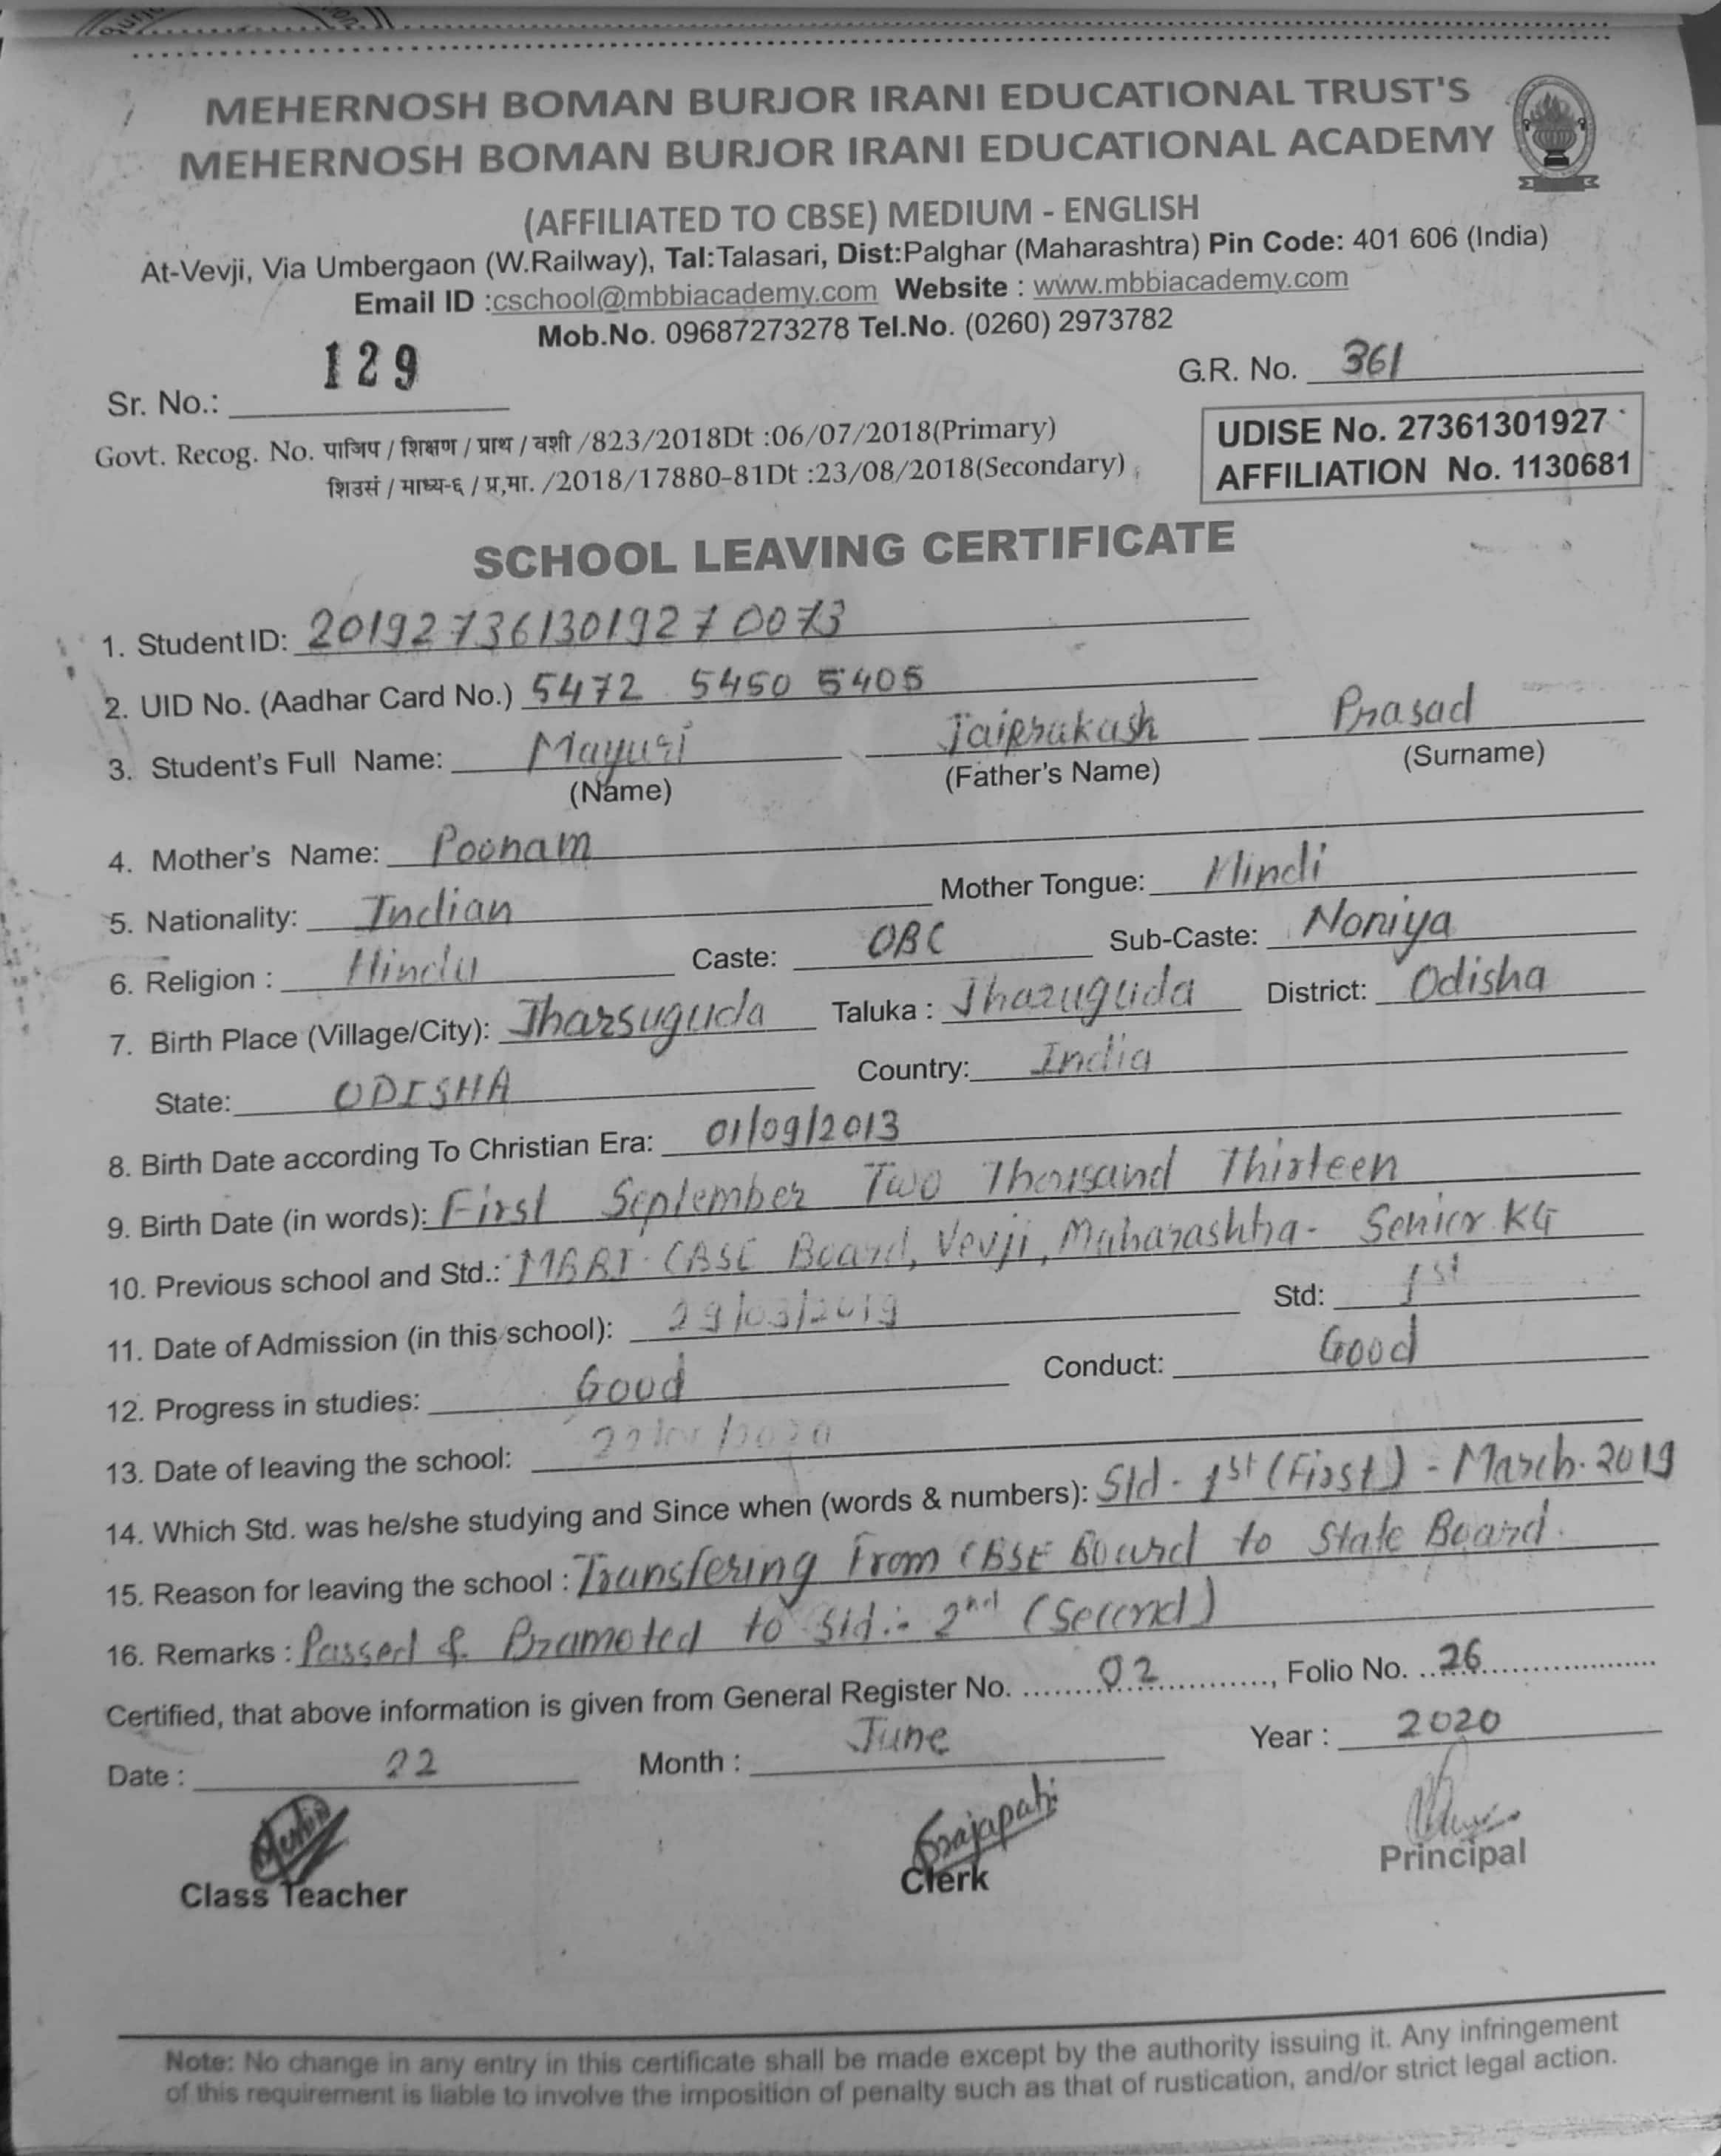 MEHERNOSH BOMAN BURJOR IRANI EDUCATIONAL TRUST'S
MEHERNOSH BOMAN BURJOR IRANI EDUCATIONAL ACADEMY
(AFFILIATED TO CBSE) MEDIUM - ENGLISH
At-Vevji, Via Umbergaon (W.Railway), Tal:Talasari, Dist:Palghar (Maharashtra) Pin Code: 401 606 (India)
Email ID :cschool@mbbiacademy.com Website : www.mbbiacademy.com
Mob.No. 09687273278 Tel.No. (0260) 2973782
Sr. No.: 129 G.R. No. 361
Govt. Recog. No. पाजिप / शिक्षण / प्राथ / वशी /823/2018Dt :06/07/2018(Primary)
शिउसं / माध्य-६ / प्र,मा. /2018/17880-81Dt :23/08/2018(Secondary)
UDISE No. 27361301927
AFFILIATION No. 1130681
SCHOOL LEAVING CERTIFICATE
1. Student ID: 2019273613019270073
2. UID No. (Aadhar Card No.) 5472 5450 5405
3. Student's Full Name: Mayuri Jaiprakash Prasad
(Name) (Father's Name) (Surname)
4. Mother's Name: Poonam
5. Nationality: Indian Mother Tongue: Hindi
6. Religion : Hindu Caste: OBC Sub-Caste: Noniya
7. Birth Place (Village/City): Jharsuguda Taluka : Jharuguda District: Odisha
State: ODISHA Country: India
8. Birth Date according To Christian Era: 01/09/2013
9. Birth Date (in words): First September Two Thousand Thirteen
10. Previous school and Std.: MBBI CBSE Board, Vevji, Maharashtra - Senior KG
11. Date of Admission (in this school): 29/03/2019 Std: 1st
12. Progress in studies: Good Conduct: Good
13. Date of leaving the school:
14. Which Std. was he/she studying and Since when (words & numbers): Std - 1st (First) - March. 2019
15. Reason for leaving the school : Transfering From CBSE Board to State Board.
16. Remarks : Passed & Pramoted to Std :- 2nd (Second)
Certified, that above information is given from General Register No. 02, Folio No. 26
Date : 22 Month : June Year : 2020
Prajapati
Class Teacher Clerk Principal
Note: No change in any entry in this certificate shall be made except by the authority issuing it. Any infringement
of this requirement is liable to involve the imposition of penalty such as that of rustication, and/or strict legal action.